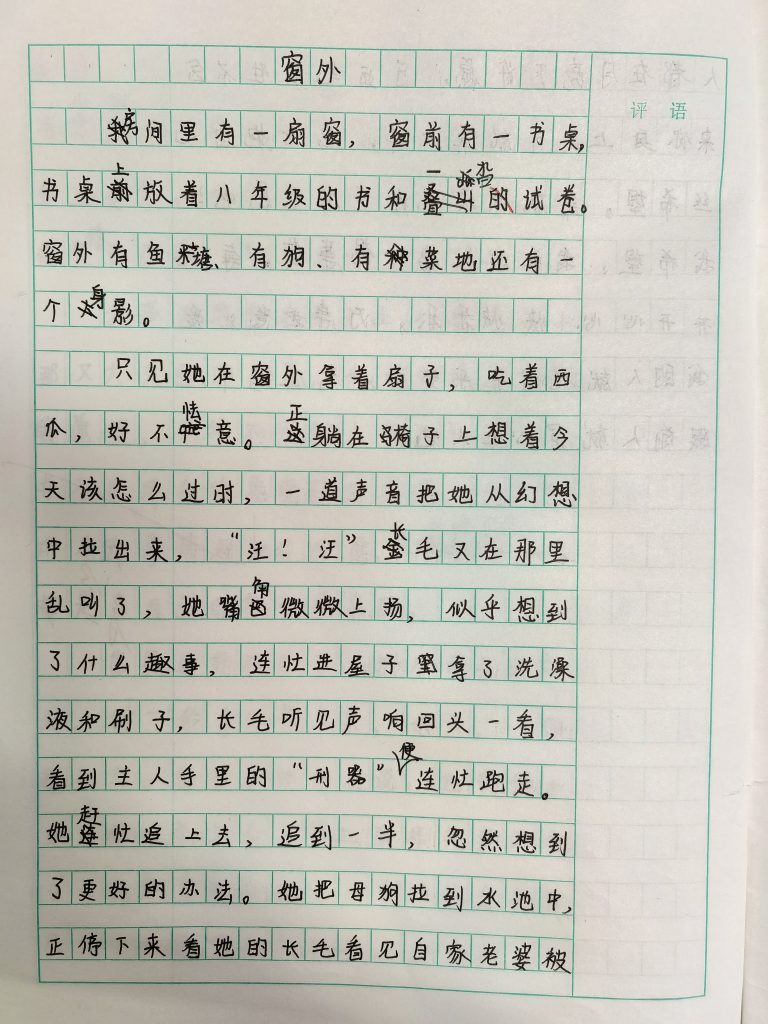 窗外
评语
房间里有一扇窗，窗前有一书桌，
书桌上放着八年级的书和一沓的试卷。
窗外有鱼塘、有狗、有菜地还有一
个身影。
只见她在窗外拿着扇子，吃着西
瓜，好不惬意。正躺在椅子上想着今
天该怎么过时，一道声音把她从幻想
中拉出来，“汪！汪”长毛又在那里
乱叫了，她嘴角微微上扬，似乎想到
了什么趣事，连忙进屋子里拿了洗澡
液和刷子，长毛听见声响回头一看，
看到主人手里的“刑器”便连忙跑走。
她赶忙追上去，追到一半，忽然想到
了更好的办法。她把母狗拉到水池中，
正停下来看她的长毛看见自家老婆被